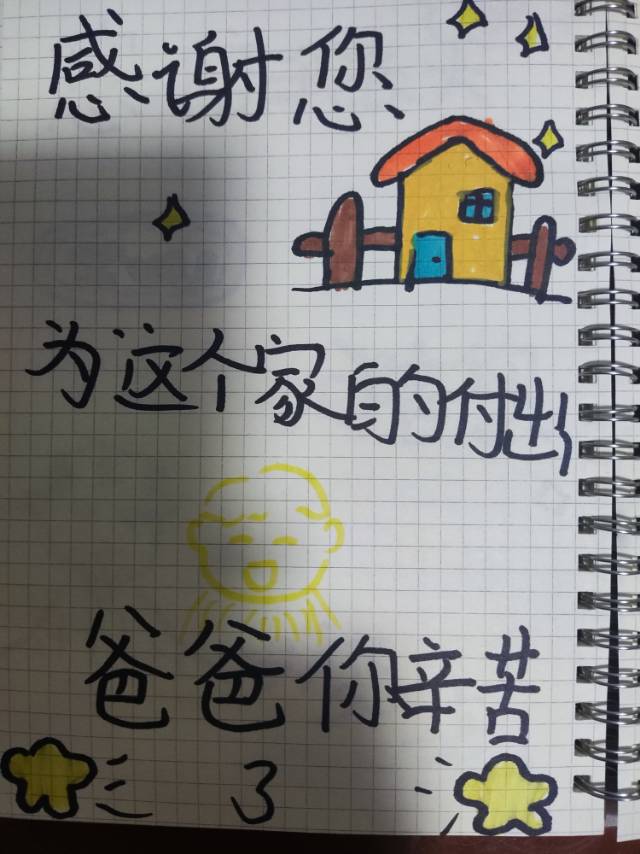 感谢您
为这个家的付出
爸爸你辛苦
了